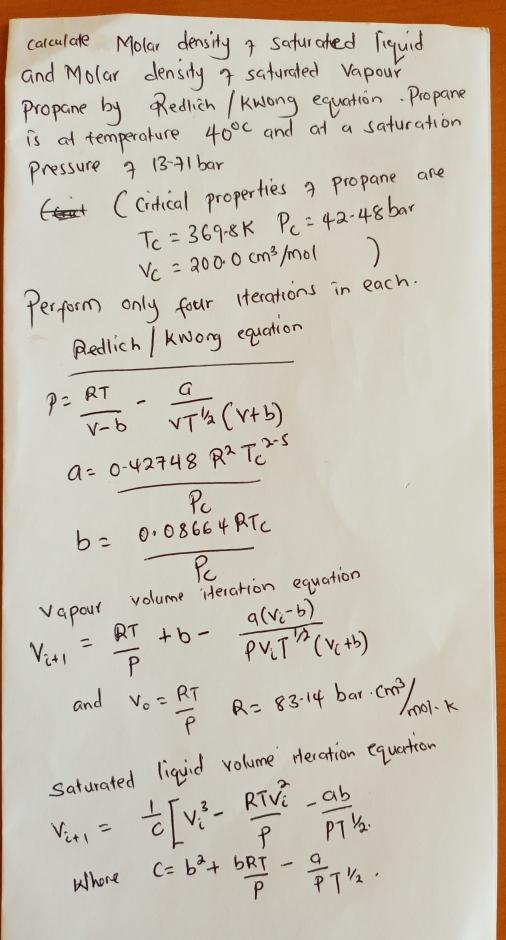 calculate Molar density of saturated liquid
and Molar density of saturated Vapour
Propane by Redlich / Kwong equation . Propane
is at temperature 40°C and at a saturation
Pressure of 13-71 bar
( Critical properties of propane are
Tc = 369.8K Pc = 42.48 bar
Vc = 200.0 cm³/mol )
Perform only four iterations in each.
Redlich / Kwong equation
P = RT/(V-b) - a/(VT^½ (V+b))
a = 0.42748 R² Tc^2.5 / Pc
b = 0.08664 RTc / Pc
Vapour volume iteration equation
Vi+1 = RT/P + b - a(Vi-b)/(PViT^½ (Vi+b))
and V0 = RT/P R = 83.14 bar.cm³/mol-K
Saturated liquid volume iteration equation
Vi+1 = 1/C [Vi³ - RTVi²/P - ab/PT^½.
Where C = b² + bRT/P - a/PT^½.